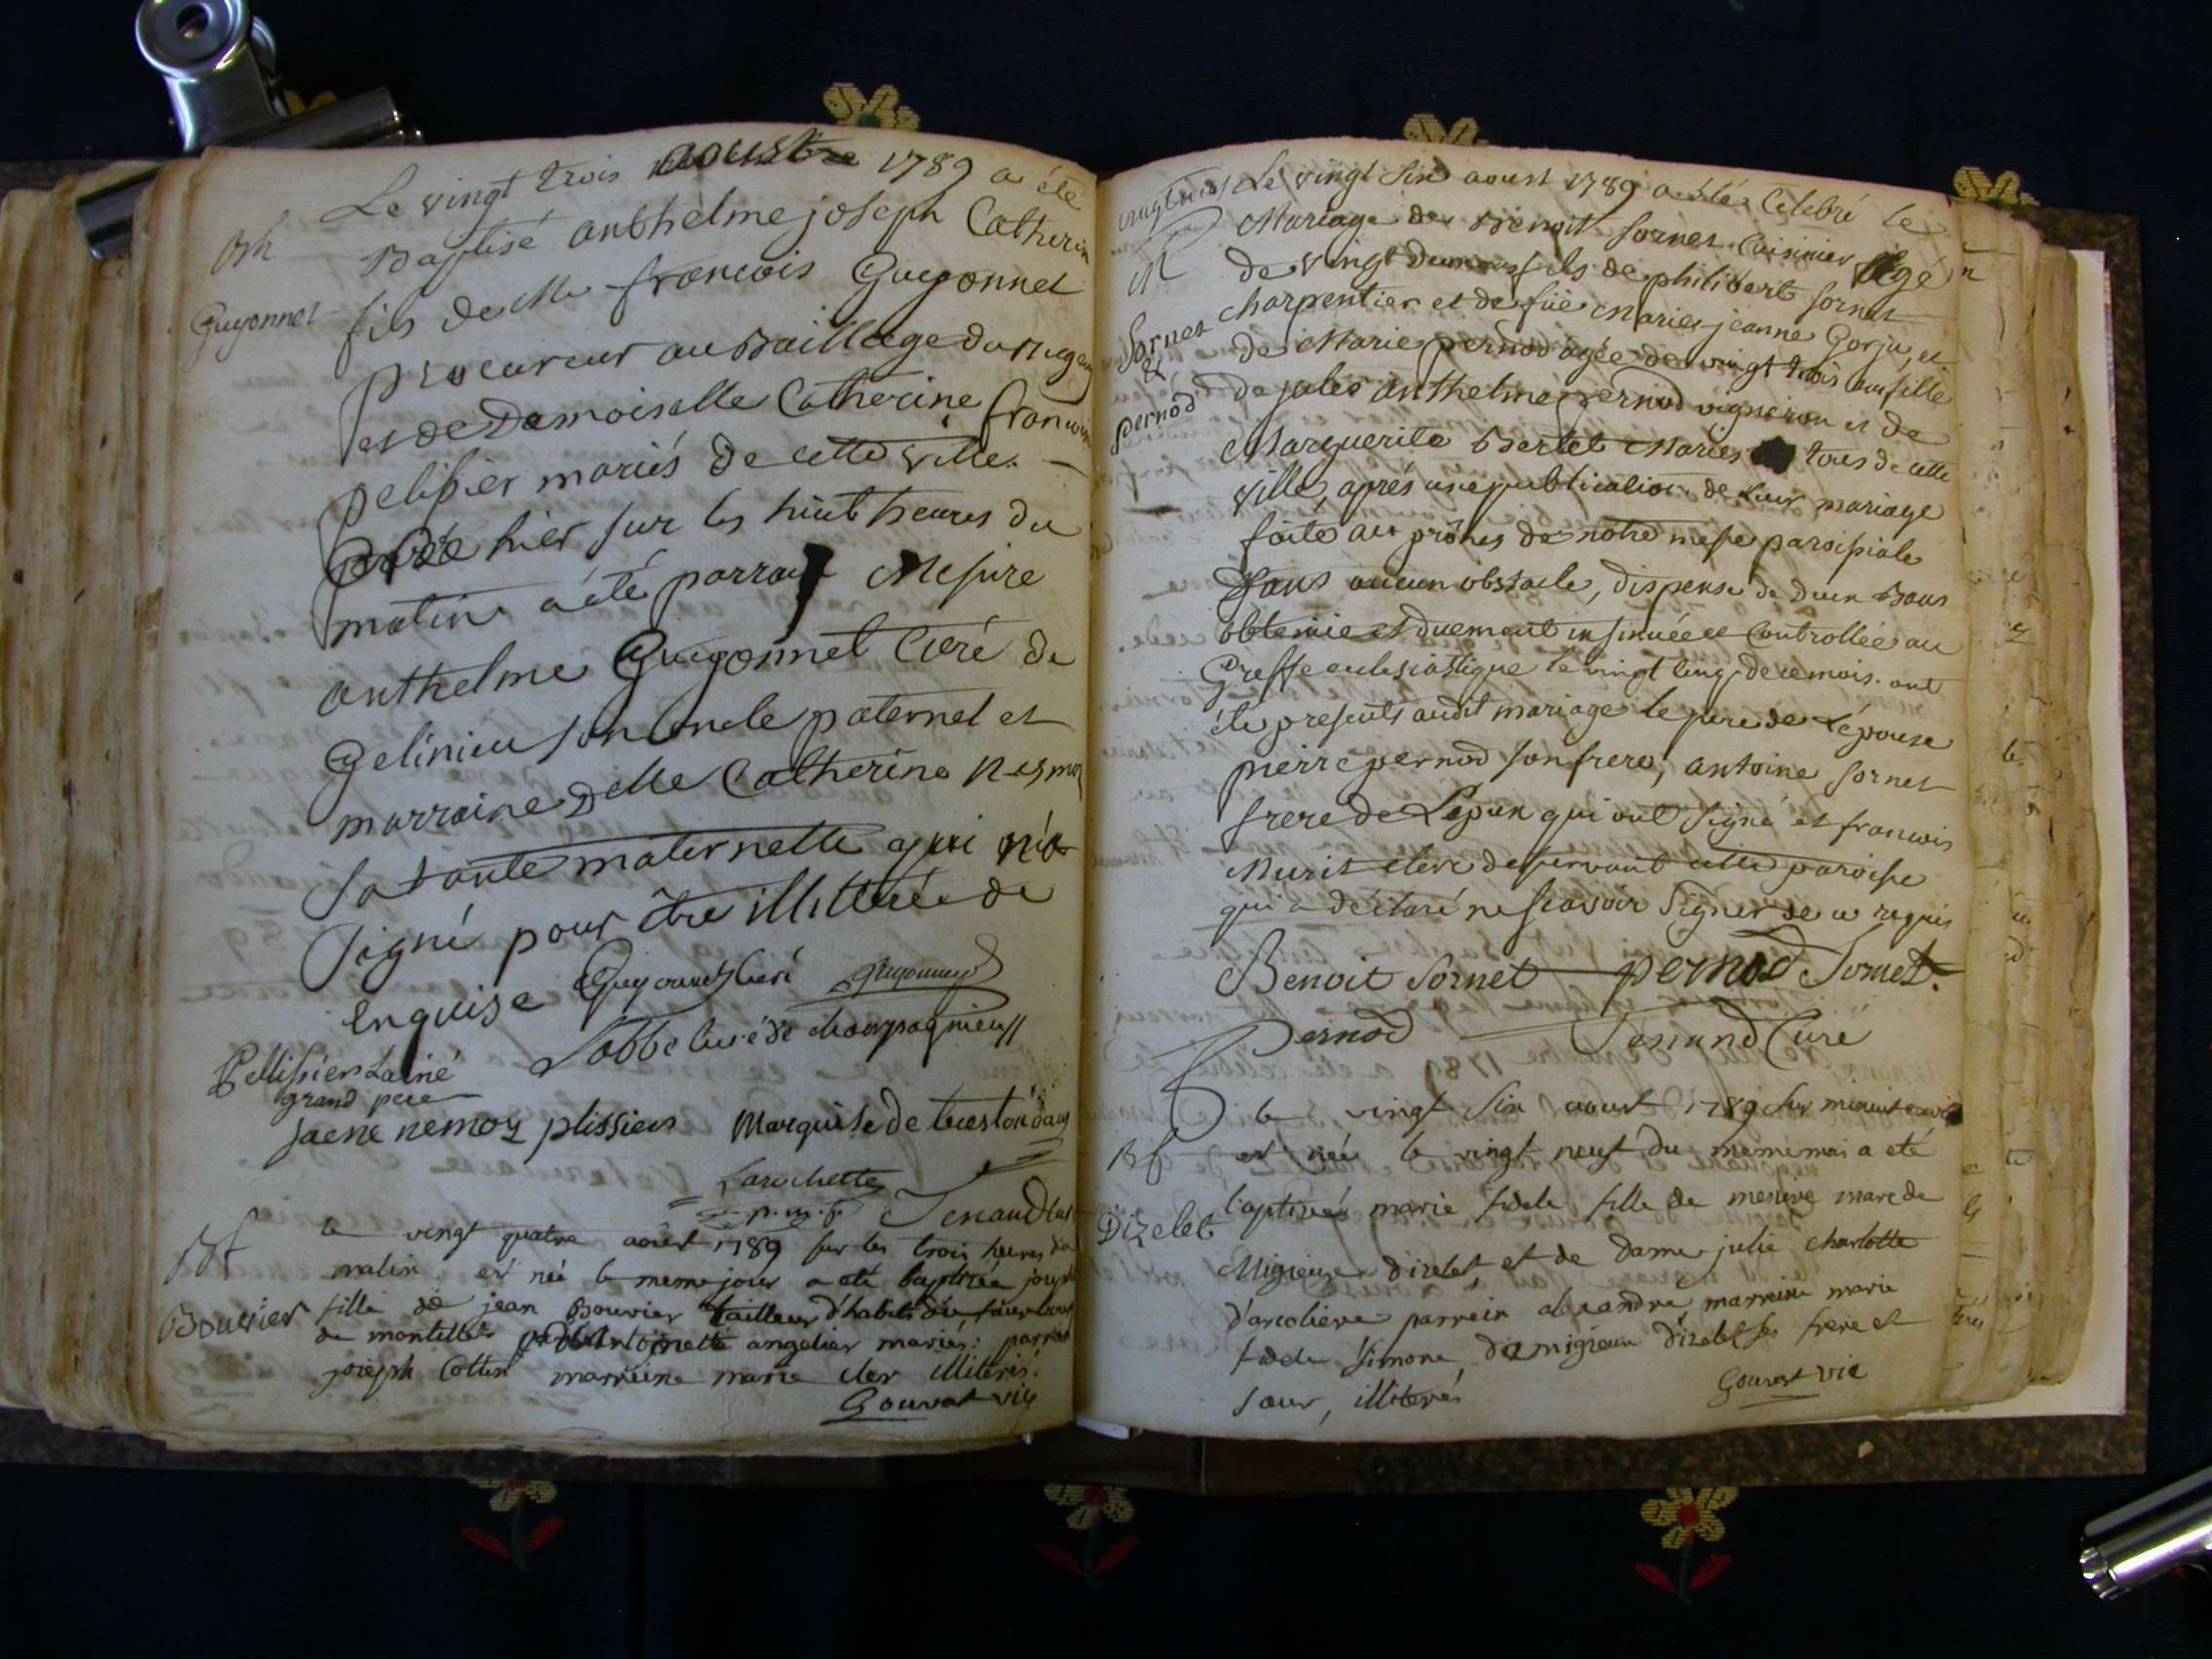 Le vingt trois aoust 1789 a été
Bh Baptisé anthelme joseph Catherin
Guyonnet fils de Me francois Guyonnet
procureur au Bailliage du Bugey
et de Demoiselle Catherine francoise
pelissier mariés de cette ville.
hier sur les huit heures du
matin a été parrain Messire
anthelme Guyonnet Curé de
Gelinieu son oncle paternel et
marraine Dlle Catherine Nesmoz
sa tante maternelle qui n'a
signé pour être illitterée de
enquise Guyonnet Curé Guyonnet
Pellissier L'ainé L'abbé Curé de champagnieux
grand pere
jaene nemoz plissier Marquise de
Larochette
p. m. f. Jenand Curé
Bf le vingt quatre aoust 1789 sur les trois heures du
matin est née le meme jour a eté baptisée joseph
Bouvier fille de jean Bouvier tailleur d'habits du
de antoinette angelier mariés: parrain
joseph Cottin marreine marie cler illiterés.
Gouvat vic
Le vingt six aoust 1789 a été Célébré le
M Mariage de Benoit sornet Cuisinier agé
de vingt fils de philibert sornet
Sornet charpentier et de füe Marie jeanne Gorju, et
& de Marie pernod agée de vingt trois ans fille
pernod de jules anthelme pernod vigneron et de
Marguerite Bertet Mariés tous de cette
ville, aprés une publication de leur mariage
faite au prônes de notre messe paroissiale
sans aucun obstacle, dispense de deux Bans
obtenüe et duement insinuée et Controllée au
Greffe eclesiastique le vingt cinq de ce mois. ont
été presents audit mariage le pere de L'épouse
pierre pernod son frere, antoine sornet
frere de L'epoux qui ont signé et francois
Murit clerc desservant cette paroisse
qui a déclaré ne scavoir signer de ce requis
Benoit Sornet pernod Sornet.
Pernod Jenand Curé
le vingt six aoust 1789 sur minuit
Bf est née le vingt neuf du meme mois a eté
Dizelet baptisée marie fidele fille de messire marc de
Migieux dizelet et de dame julie charlotte
d'arcoliere parrein alexandre marreine marie
fidele simone de migieux dizelet ses frere et
sœur, illiterés Gouvat vic